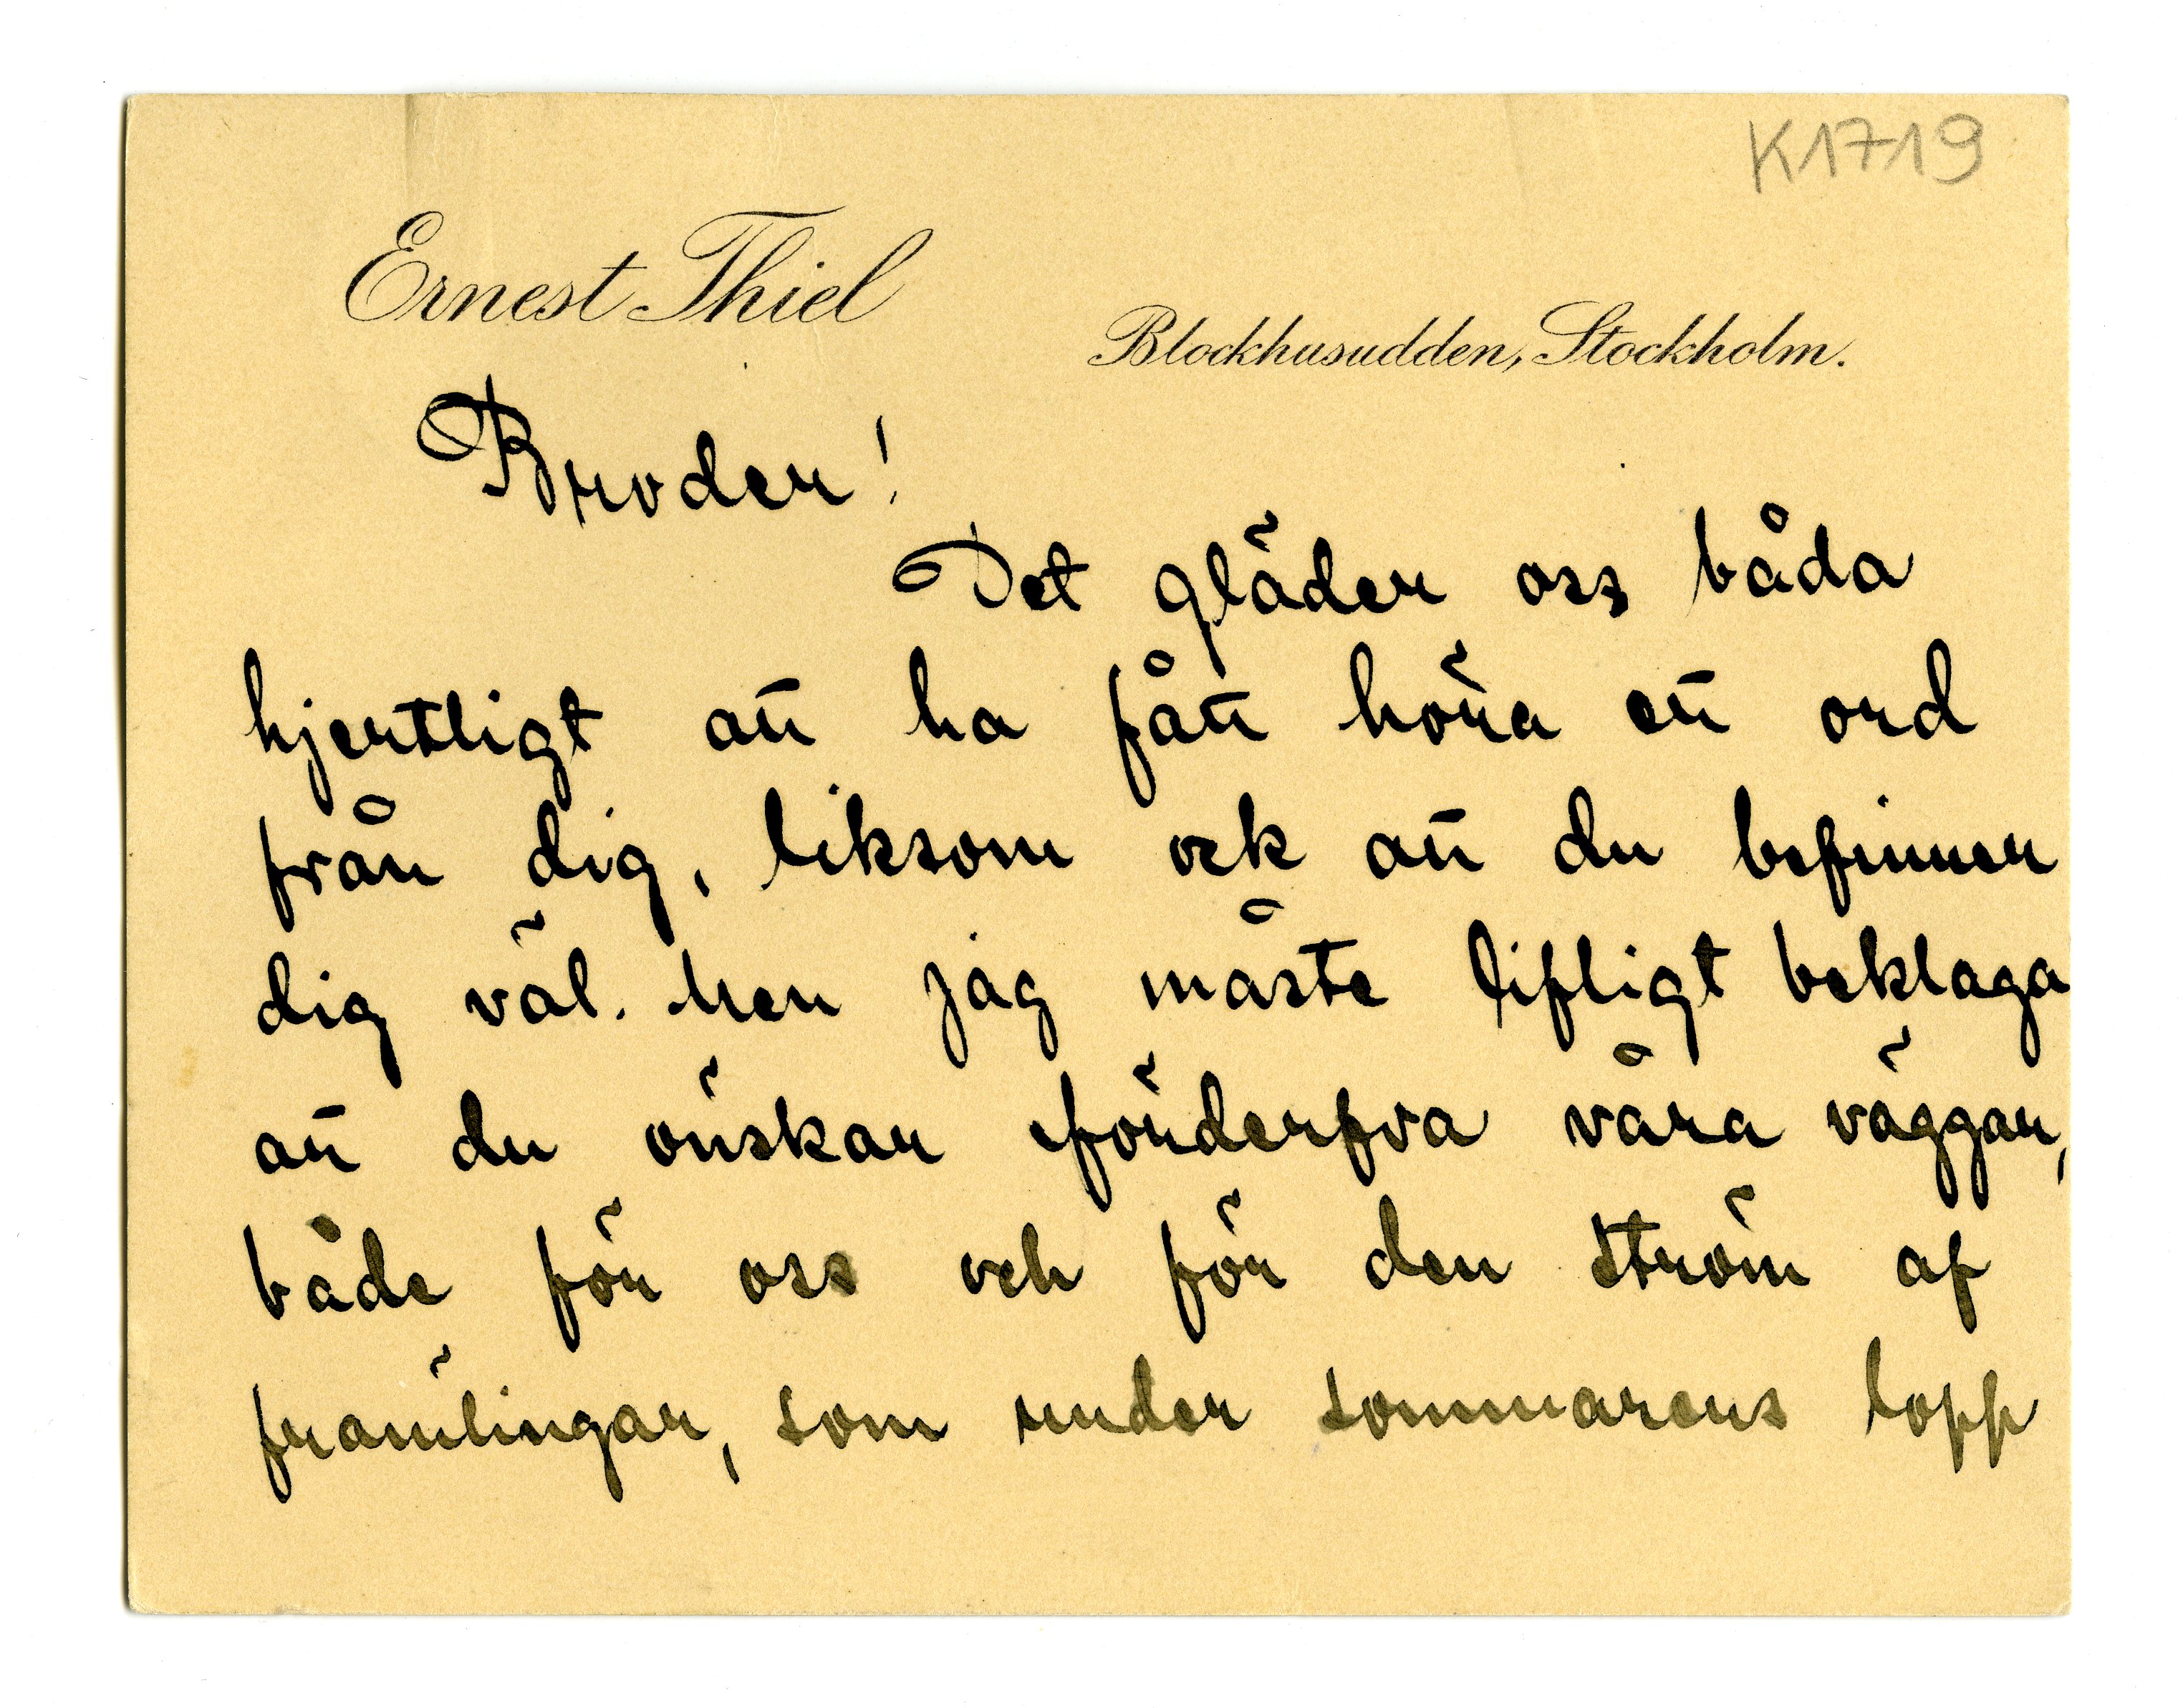 K1719
Ernest Thiel
Blockhusudden, Stockholm.
Broder!
Det gläder oss båda
hjertligt att ha fått höra ett ord
från dig, liksom ock att du befinner
dig väl. Men jag måste lifligt beklaga
att du önskar förderfva våra väggar,
både för oss och för den ström af
främlingar, som under sommarens lopp